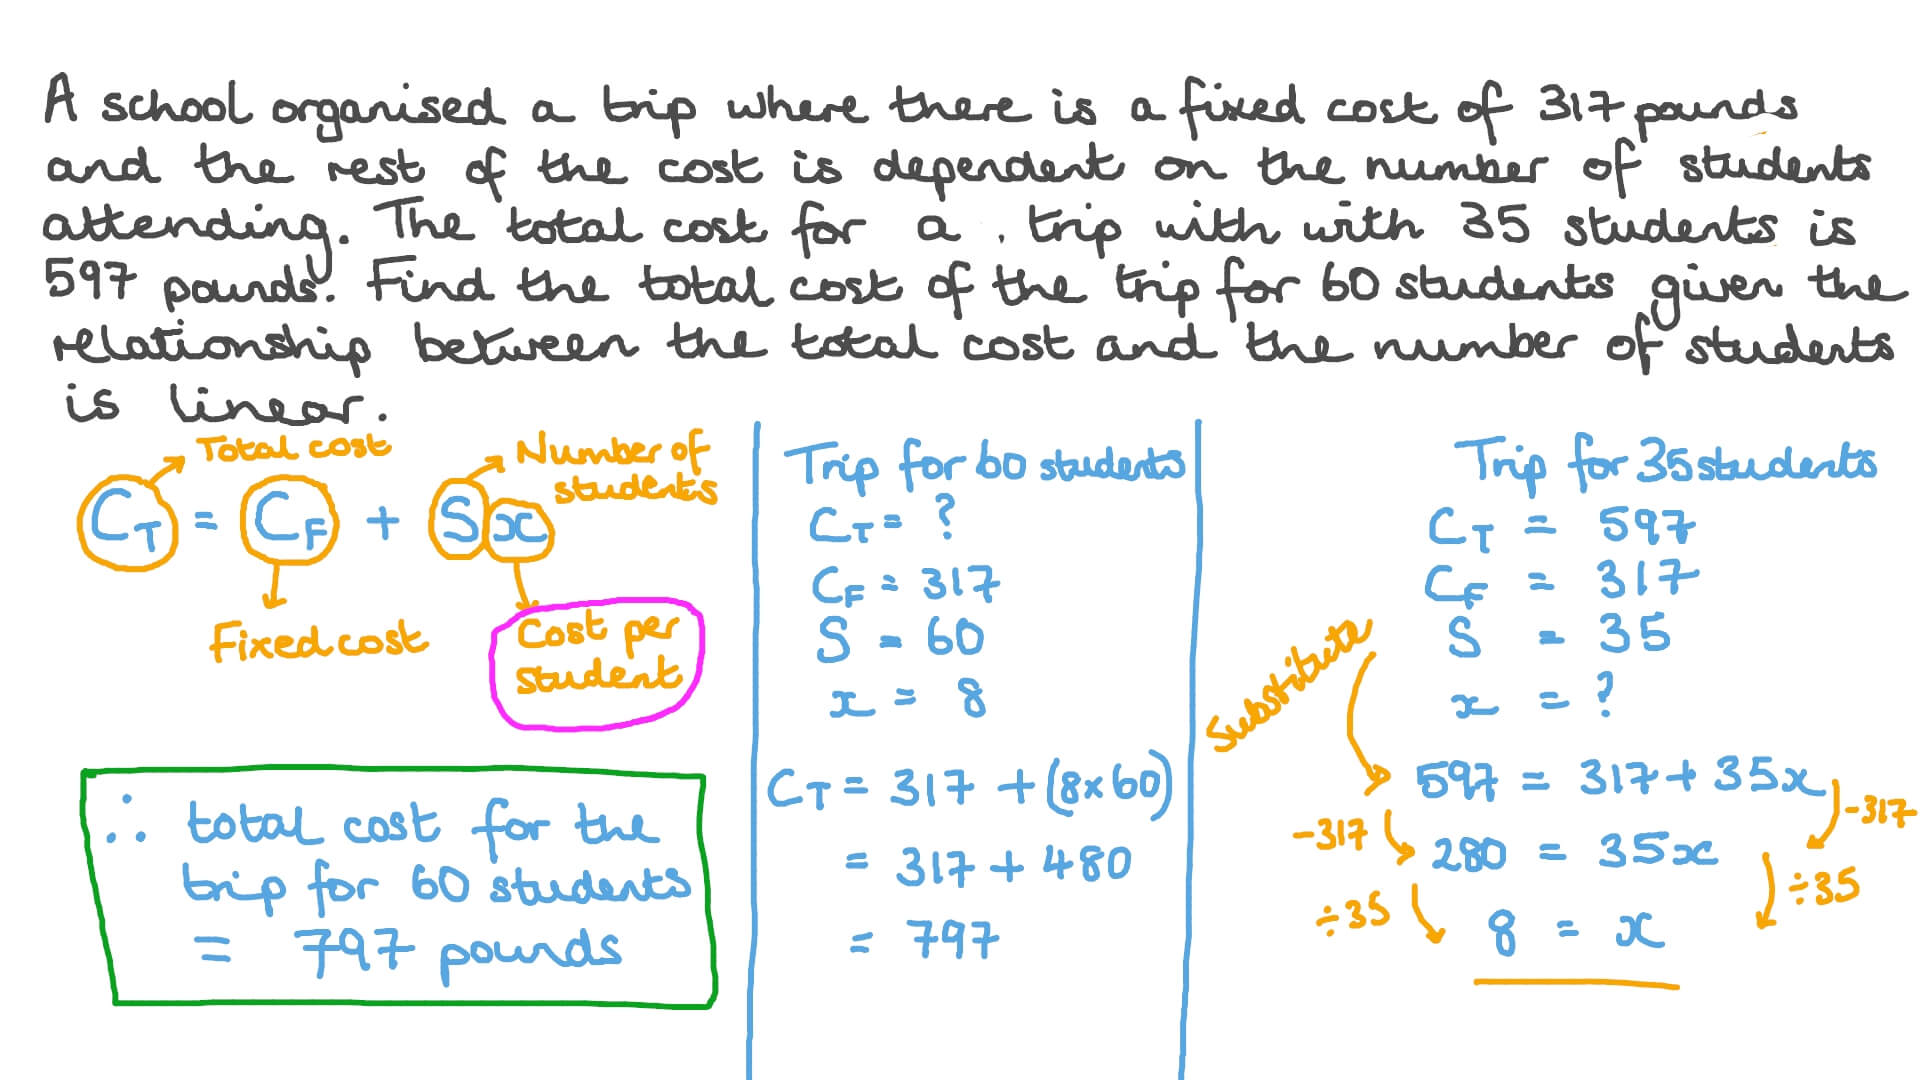 A school organised a trip where there is a fixed cost of 317 pounds
and the rest of the cost is dependent on the number of students
attending. The total cost for a . trip with with 35 students is
597 pounds. Find the total cost of the trip for 60 students given the
relationship between the total cost and the number of students
is linear.
Total cost
Number of
students
C_T = C_F + Sx
Fixed cost
Cost per
student
∴ total cost for the
trip for 60 students
= 797 pounds
Trip for 60 students
C_T = ?
C_F = 317
S = 60
x = 8
C_T = 317 + (8×60)
= 317 + 480
= 797
Trip for 35 students
C_T = 597
C_F = 317
S = 35
x = ?
Substitute
597 = 317 + 35x
-317
-317
280 = 35x
÷35
÷35
8 = x